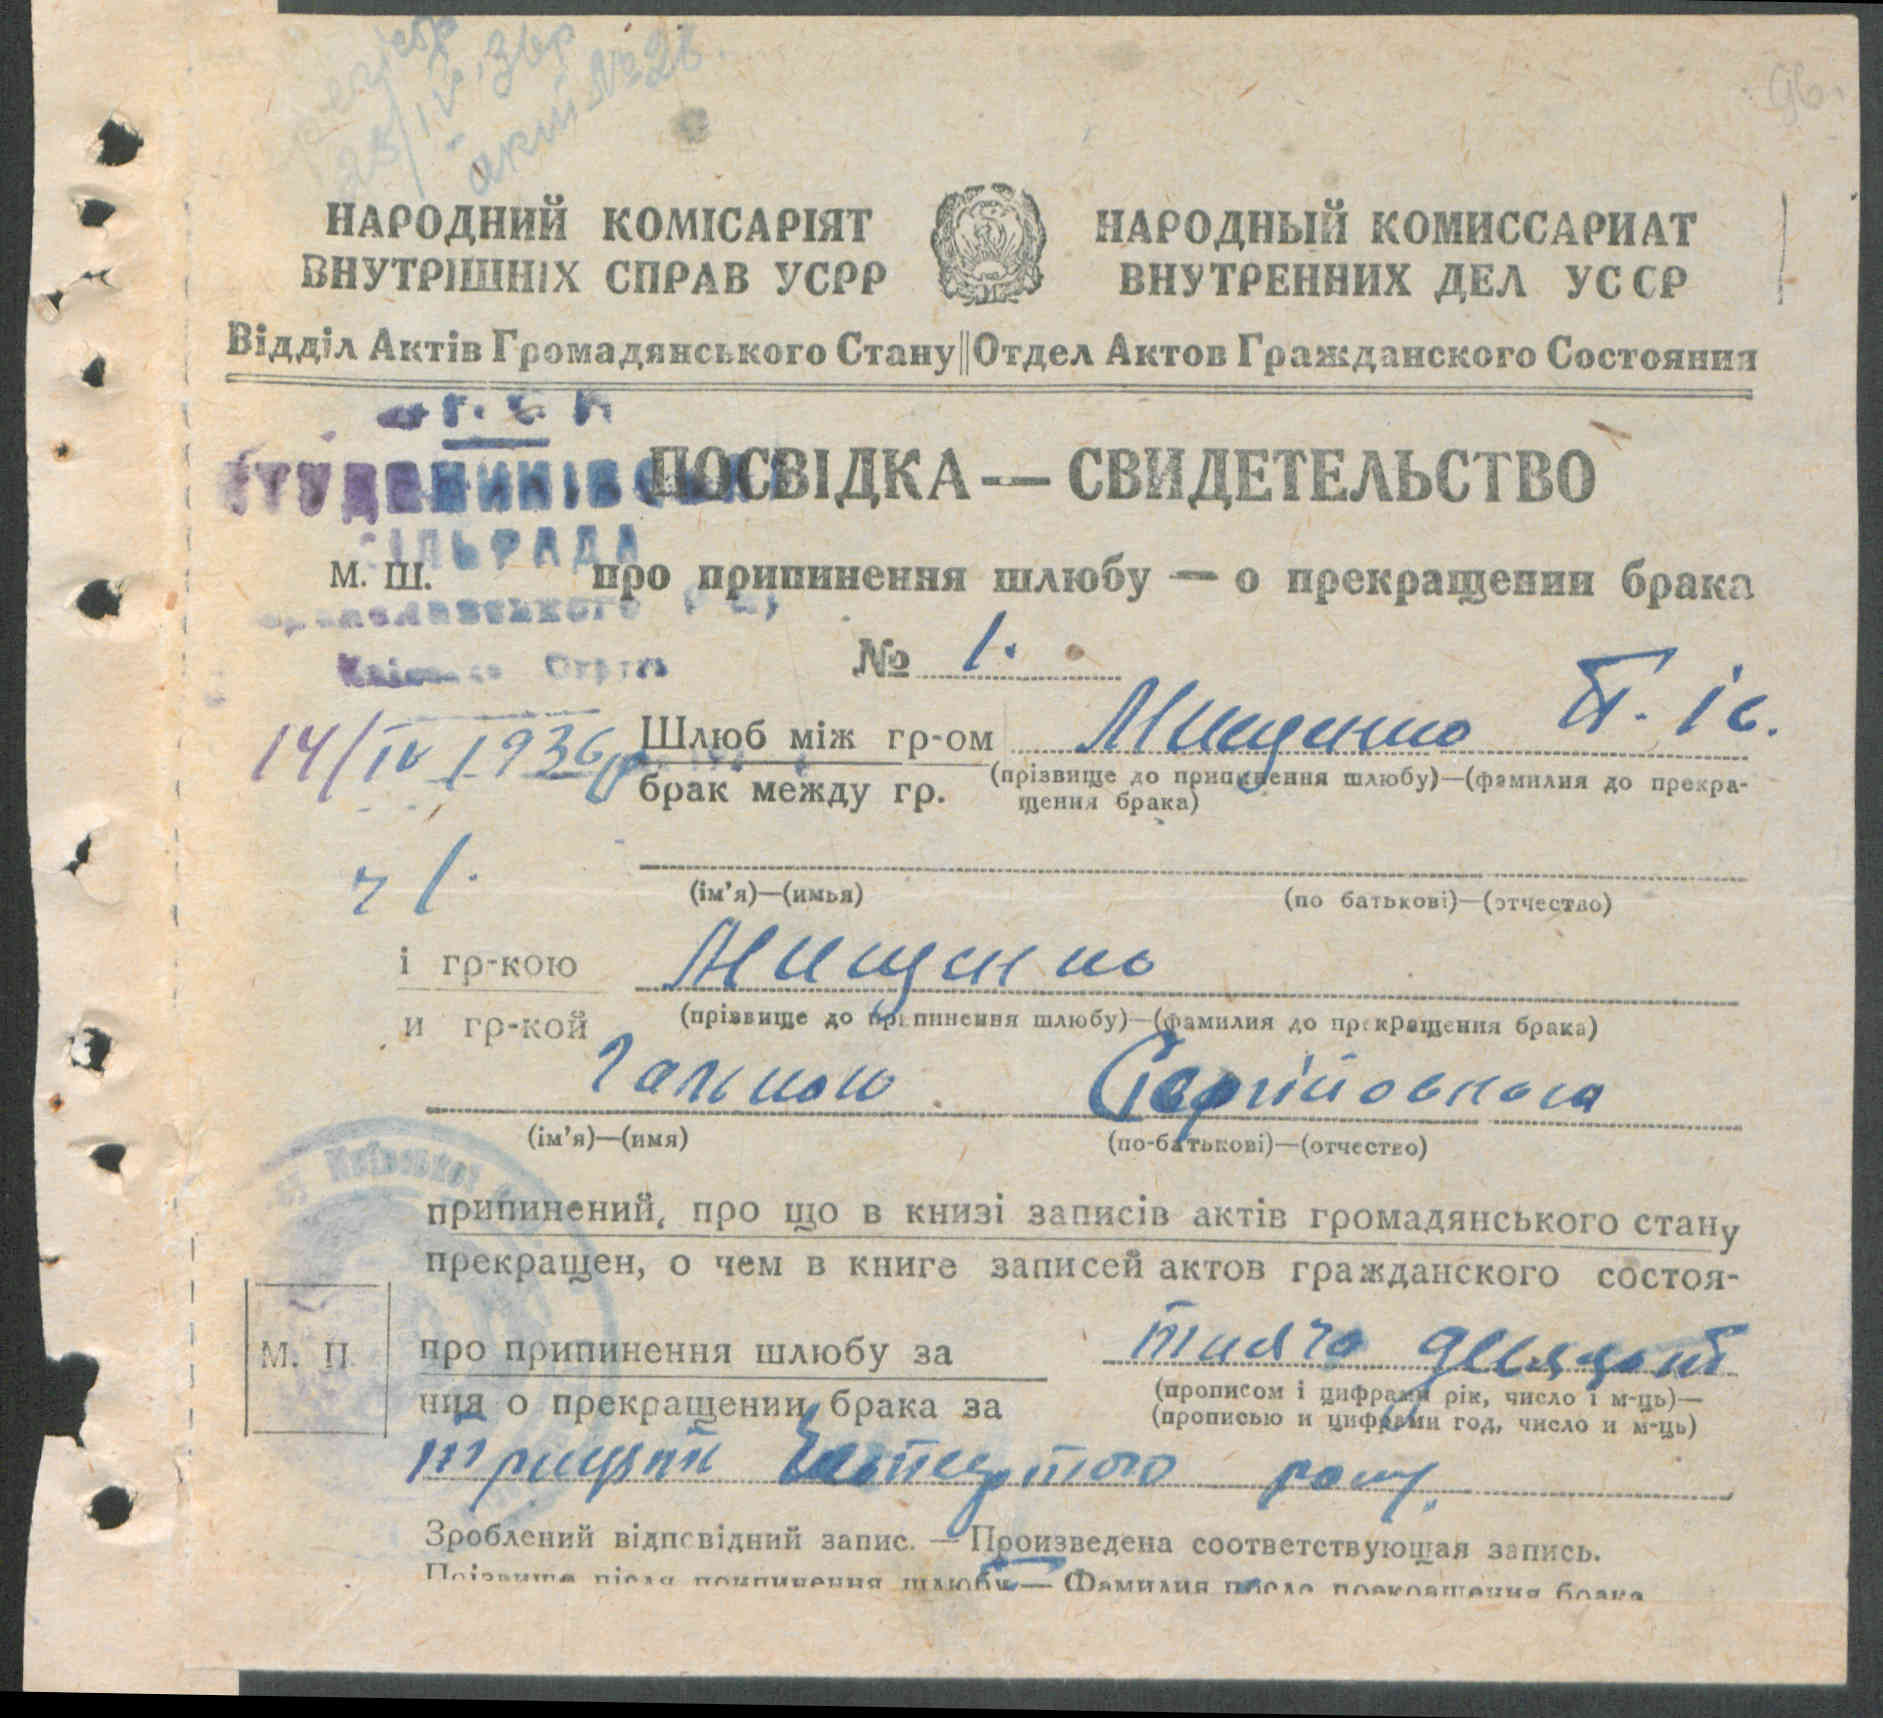 акт № 26.
НАРОДНИЙ КОМІСАРІЯТ
ВНУТРІШНІХ СПРАВ УСРР
НАРОДНЫЙ КОМИССАРИАТ
ВНУТРЕННИХ ДЕЛ УССР
Відділ Актів Громадянського Стану || Отдел Актов Гражданского Состояния
ПОСВІДКА — СВИДЕТЕЛЬСТВО
СТУДЕНИКІВСЬКА
СІЛЬРАДА
М. Ш.
про припинення шлюбу — о прекращении брака
№ 1.
14/IV 1936 р
Шлюб між гр-ом Мищенко П. Іс.
брак между гр.
(прізвище до припинення шлюбу)—(фамилия до прекра-
щения брака)
ч 1.
(ім'я)—(имья)
(по батькові)—(отчество)
і гр-кою Мищенко
и гр-кой
(прізвище до припинення шлюбу)—(фамилия до прекращения брака)
Галькою Сергійовною
(ім'я)—(имя)
(по-батькові)—(отчество)
припинений, про що в книзі записів актів громадянського стану
прекращен, о чем в книге записей актов гражданского состоя-
М. П.
про припинення шлюбу за тисяча девяцот
ния о прекращении брака за
(прописом і цифрами рік, число і м-ць)—
(прописью и цифрами год, число и м-ць)
трицять року
Зроблений відповідний запис. — Произведена соответствующая запись.
Прізвище після припинення шлюбу — Фамилия после прекращения брака